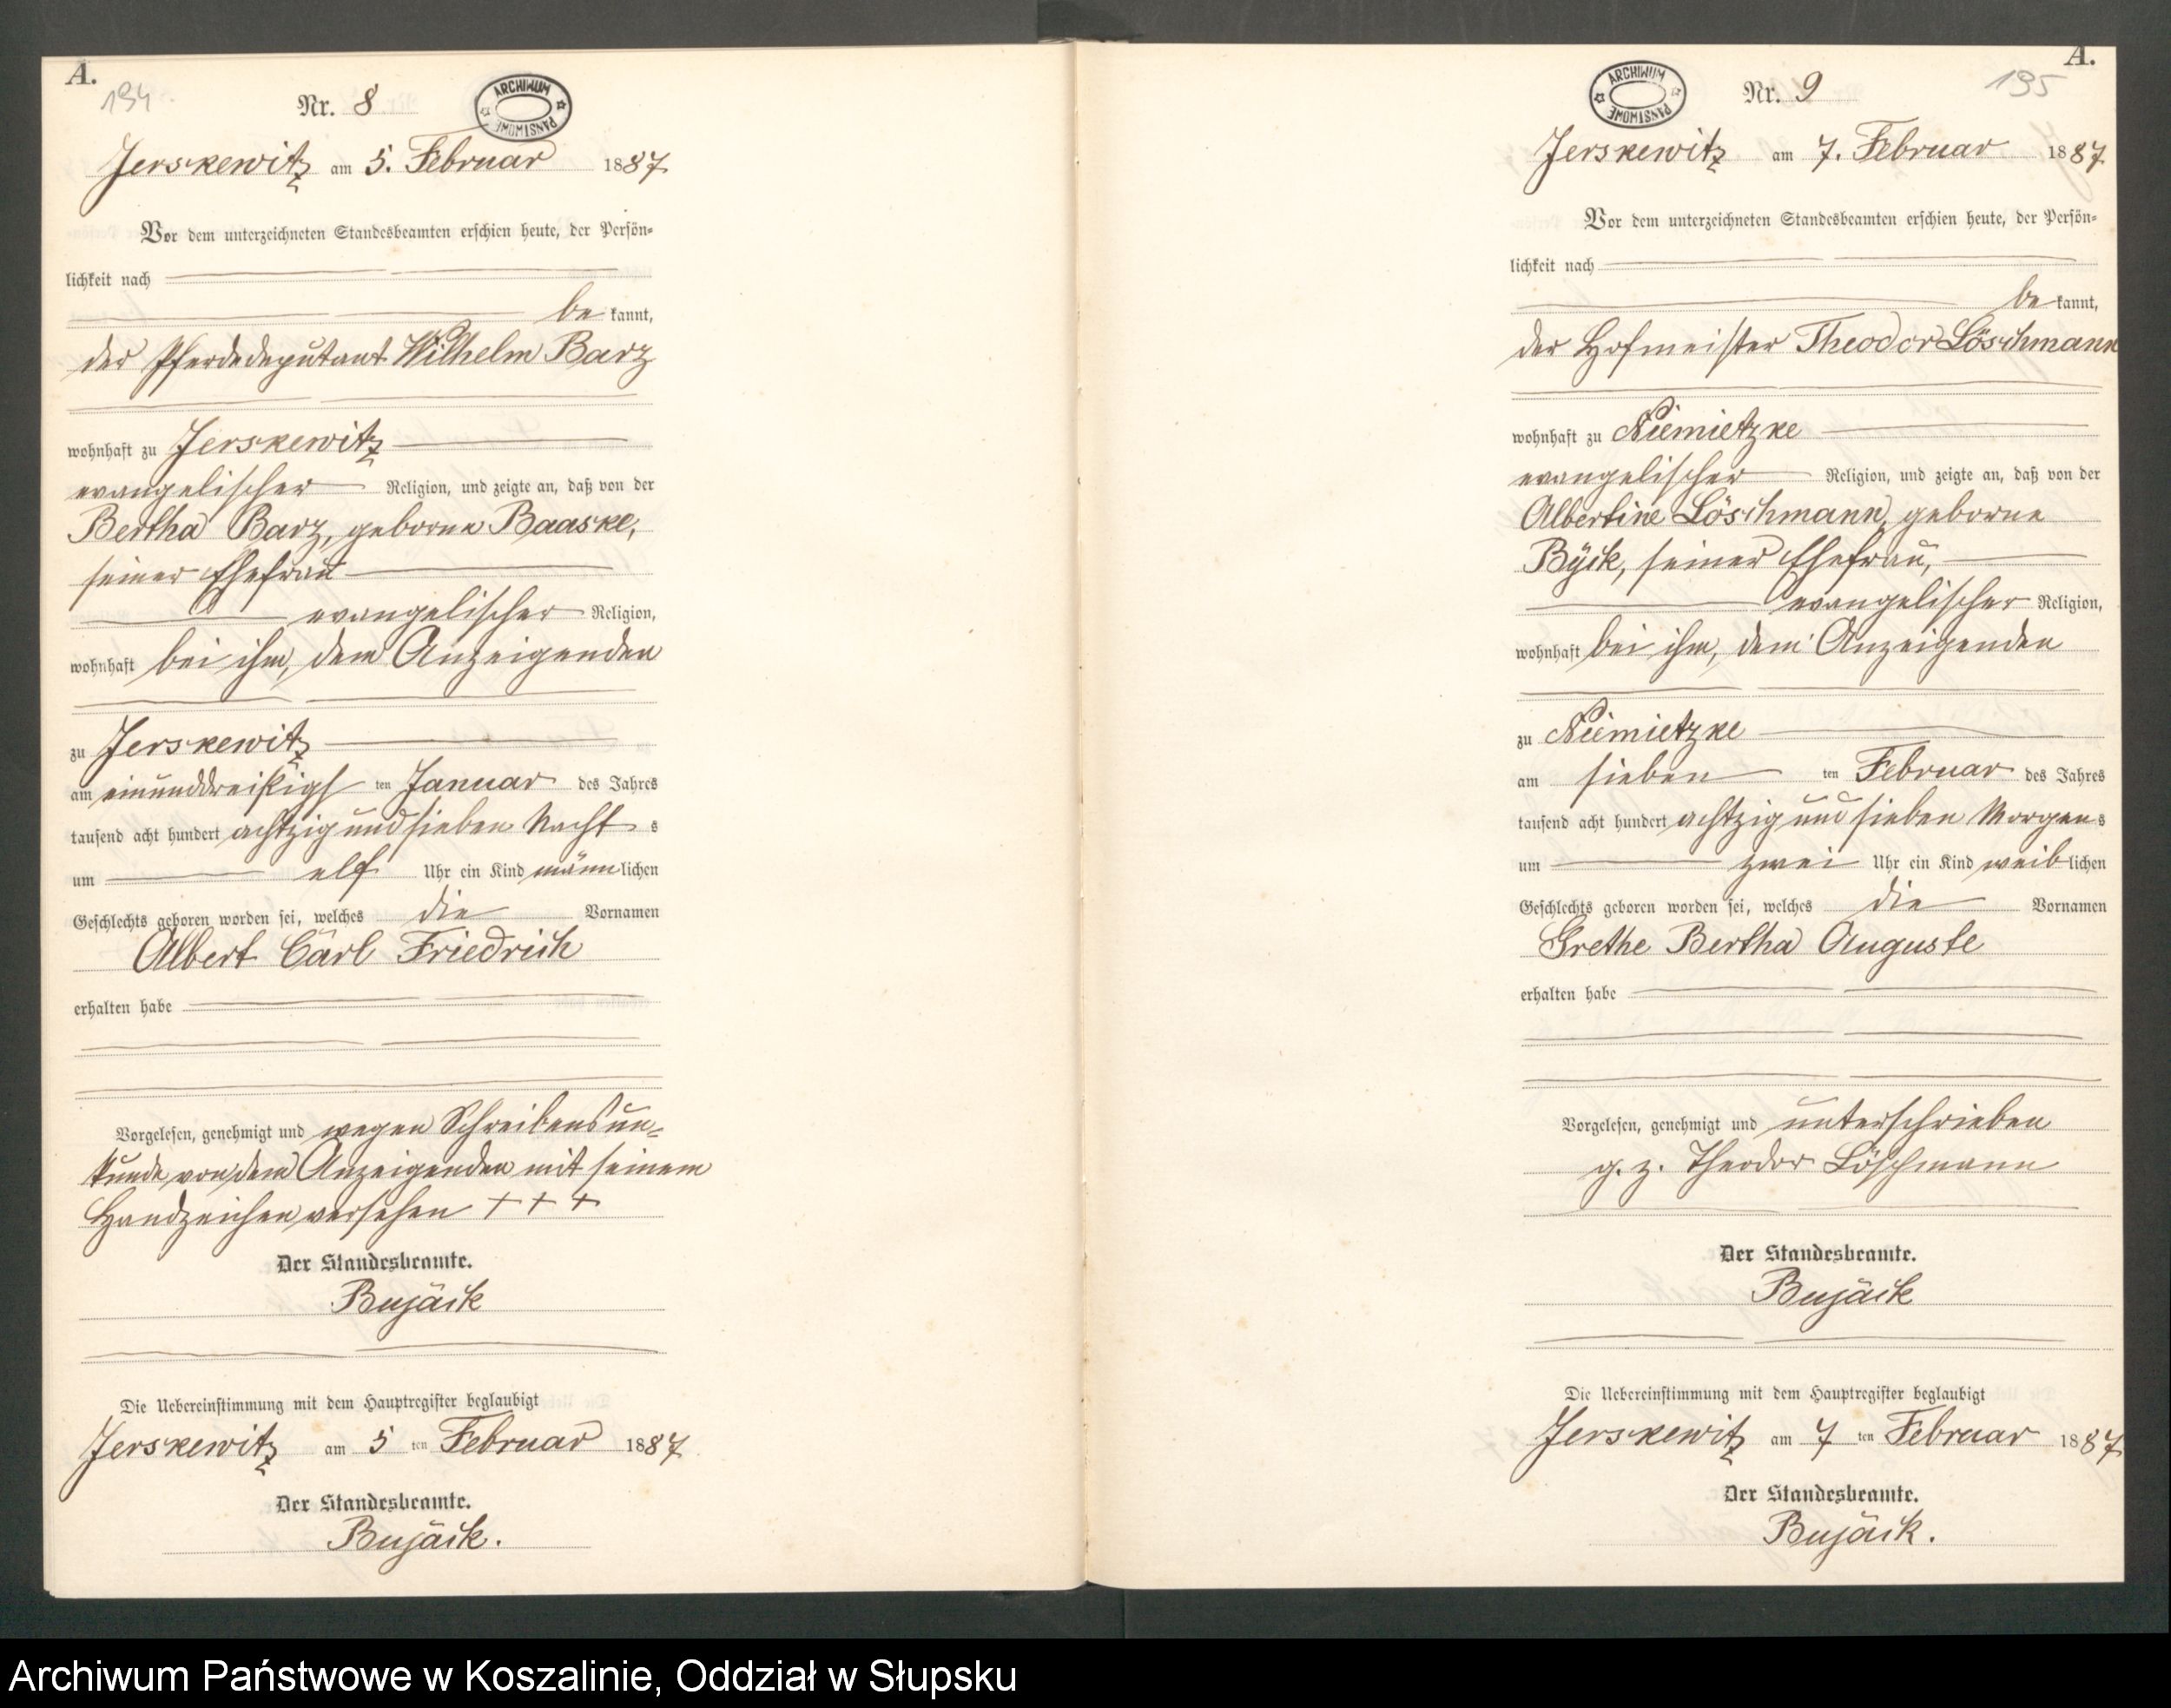 A.
194
Nr. 8
ARCHIWUM PAŃSTWOWE
Jerskewitz am 5. Februar 1887
Vor dem unterzeichneten Standesbeamten erschien heute, der Persön-
lichkeit nach
be kannt,
der Pferdedeputant Wilhelm Barz
wohnhaft zu Jerskewitz
evangelischer Religion, und zeigte an, daß von der
Bertha Barz, geborne Baaske,
seiner Ehefrau
evangelischer Religion,
wohnhaft bei ihm, dem Anzeigenden
zu Jerskewitz
am einunddreißigst ten Januar des Jahres
tausend acht hundert achtzig und sieben Nacht s
um elf Uhr ein Kind männlichen
Geschlechts geboren worden sei, welches die Vornamen
Albert Carl Friedrich
erhalten habe
Vorgelesen, genehmigt und wegen Schreibensun-
kunde von dem Anzeigenden mit seinem
Handzeichen versehen + + +
Der Standesbeamte.
Bujäck
Die Uebereinstimmung mit dem Hauptregister beglaubigt
Jerskewitz am 5 ten Februar 1887
Der Standesbeamte.
Bujäck.
A.
195
Nr. 9
ARCHIWUM PAŃSTWOWE
Jerskewitz am 7. Februar 1887
Vor dem unterzeichneten Standesbeamten erschien heute, der Persön-
lichkeit nach
be kannt,
der Hofmeister Theodor Löschmann
wohnhaft zu Niemietzke
evangelischer Religion, und zeigte an, daß von der
Albertine Löschmann, geborne
Byck, seiner Ehefrau,
evangelischer Religion,
wohnhaft bei ihm, dem Anzeigenden
zu Niemietzke
am sieben ten Februar des Jahres
tausend acht hundert achtzig und sieben Morgens
um zwei Uhr ein Kind weiblichen
Geschlechts geboren worden sei, welches die Vornamen
Grethe Bertha Auguste
erhalten habe
Vorgelesen, genehmigt und unterschrieben
g. z. Theodor Löschmann
Der Standesbeamte.
Bujäck
Die Uebereinstimmung mit dem Hauptregister beglaubigt
Jerskewitz am 7 ten Februar 1887
Der Standesbeamte.
Bujäck.
Archiwum Państwowe w Koszalinie, Oddział w Słupsku